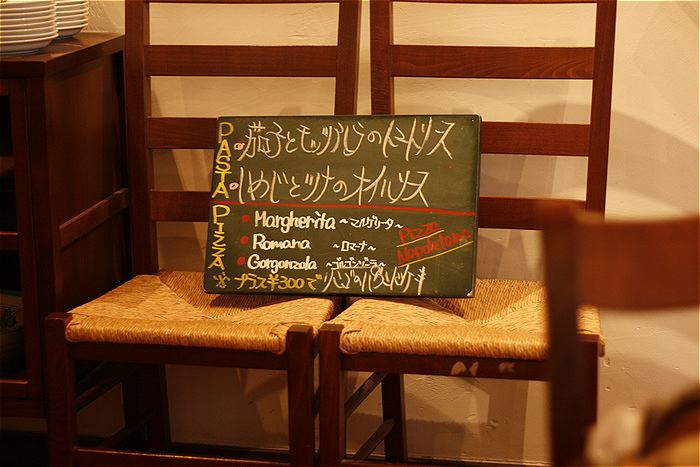 PASTA
・茄子とモッツァレラのトマトソース
・しめじとツナのオイルソース
PIZZA
・Margherita ～マルゲリータ～
・Romana ～ロマーナ～
・Gorgonzola ～ゴルゴンゾーラ～
Pizza Napoletana
※プラス¥300で